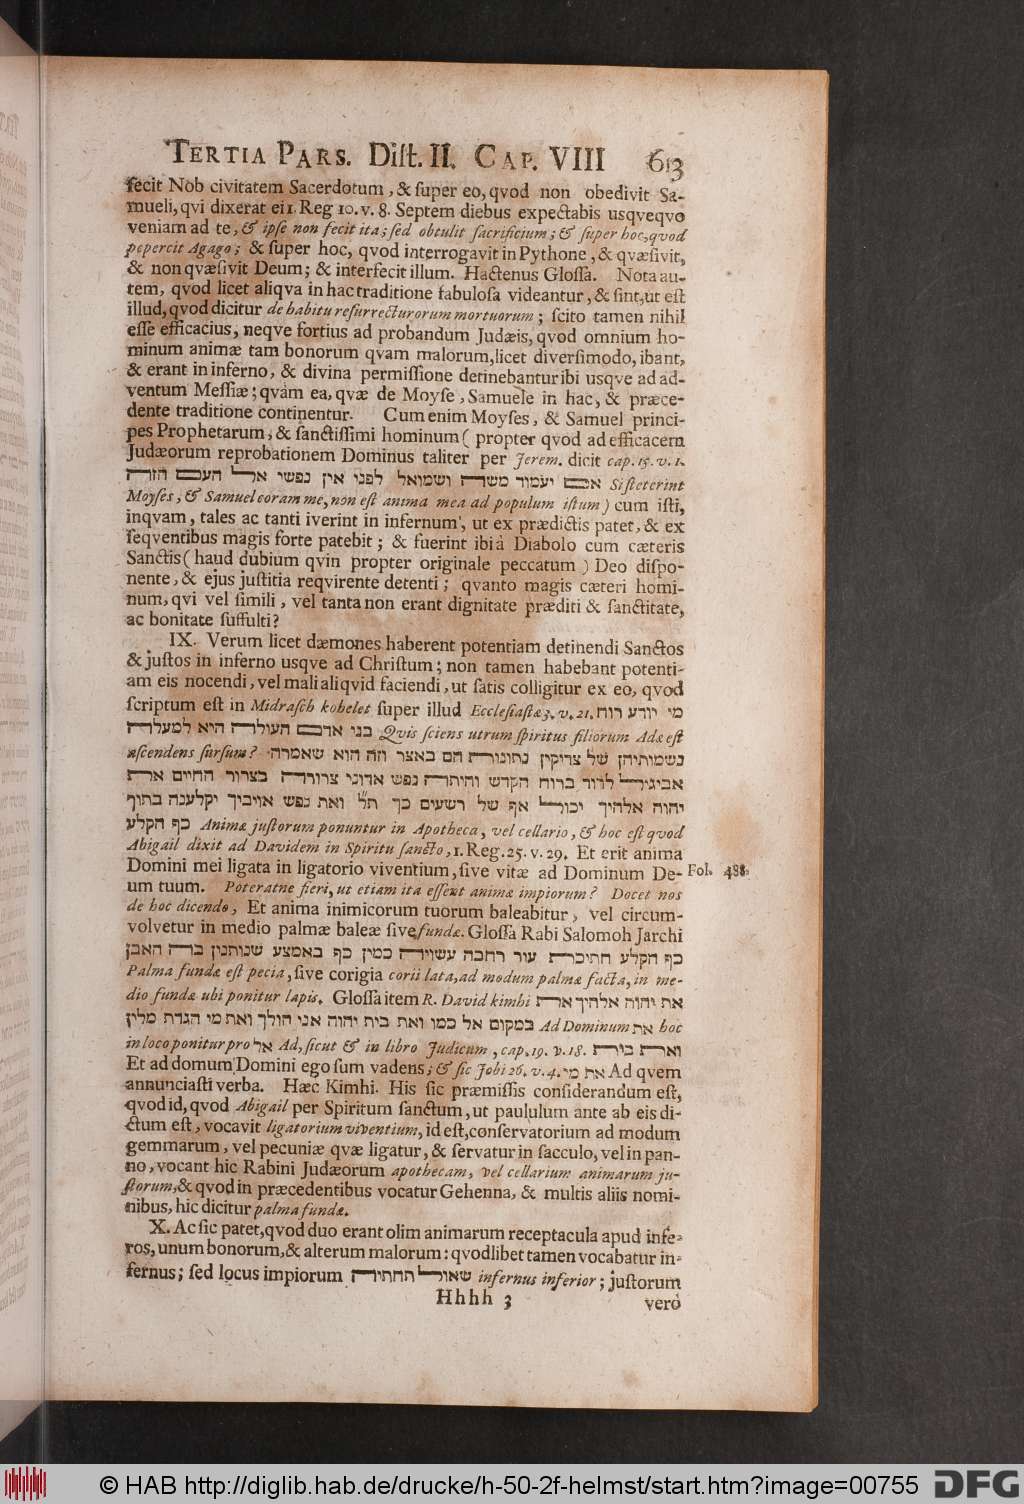 TERTIA PARS. Dist. II. CAP. VIII 613
fecit Nob civitatem Sacerdotum, & super eo, qvod non obedivit Sa-
mueli, qvi dixerat ei 1. Reg 10. v. 8. Septem diebus expectabis usqveqvo
veniam ad te, & ipse non fecit ita; sed obtulit sacrificium; & super hoc, qvod
pepercit Agago; & super hoc, qvod interrogavit in Pythone, & qvæsivit,
& non qvæsivit Deum; & interfecit illum. Hactenus Glossa. Nota au-
tem, qvod licet aliqva in hac traditione fabulosa videantur, & sint, ut est
illud, qvod dicitur de habitu resurrecturorum mortuorum; scito tamen nihil
esse efficacius, neqve fortius ad probandum Judæis, qvod omnium ho-
minum animæ tam bonorum qvam malorum, licet diversimodo, ibant,
& erant in inferno, & divina permissione detinebantur ibi usqve ad ad-
ventum Messiæ; qvàm ea, qvæ de Moyse, Samuele in hac, & præce-
dente traditione continentur. Cum enim Moyses, & Samuel princi-
pes Prophetarum, & sanctissimi hominum (propter qvod ad efficacem
Judæorum reprobationem Dominus taliter per Jerem. dicit cap. 15. v. 1.
אם יעמוד משה ושמואל לפני אין נפשי אל העם הזה Sisteterint
Moyses, & Samuel coram me, non est anima mea ad populum istum) cum isti,
inqvam, tales ac tanti iverint in infernum, ut ex prædictis patet, & ex
seqventibus magis forte patebit; & fuerint ibi à Diabolo cum cæteris
Sanctis (haud dubium qvin propter originale peccatum) Deo dispo-
nente, & ejus justitia reqvirente detenti; qvanto magis cæteri homi-
num, qvi vel simili, vel tanta non erant dignitate præditi & sanctitate,
ac bonitate suffulti?
IX. Verum licet dæmones haberent potentiam detinendi Sanctos
& justos in inferno usqve ad Christum; non tamen habebant potenti-
am eis nocendi, vel mali aliqvid faciendi, ut satis colligitur ex eo, qvod
scriptum est in Midrasch kohelet super illud Ecclesiastæ 3. v. 21. מי יודע רוח
בני אדם העולה היא למעלה Qvis sciens utrum spiritus filiorum Adæ est
ascendens sursum? נשמותיהן של צדיקין נתונות הם באצר וזה הוא שאמרה
אביגיל לדוד ברוח הקדש והיתה נפש אדוני צרורה בצרור החיים את
יהוה אלהיך יכול אף של רשעים כך תל ואת נפש אויביך יקלענה בתוף
כף הקלע Animæ justorum ponuntur in Apotheca, vel cellario, & hoc est qvod
Abigail dixit ad Davidem in Spiritu sancto, 1. Reg. 25. v. 29. Et erit anima
Domini mei ligata in ligatorio viventium, sive vitæ ad Dominum De- Fol. 488.
um tuum. Poteratne fieri, ut etiam ita essent animæ impiorum? Docet nos
de hoc dicendo, Et anima inimicorum tuorum baleabitur, vel circum-
volvetur in medio palmæ baleæ sive fundæ. Glossa Rabi Salomoh Jarchi
כף הקלע חתיכת עור רחבה עשויה כמין כף באמצע שנותנין בה האבן
Palma fundæ est pecia, sive corigia corii lata, ad modum palmæ facta, in me-
dio fundæ ubi ponitur lapis. Glossa item R. David kimhi את יהוה אלהיך את
במקום אל כמו ואת בית יהוה אני הולך ואת מי הגדת מלין Ad Dominum את hoc
in loco ponitur pro אל Ad, sicut & in libro Judicum, cap. 19. v. 18. ואת בית
Et ad domum Domini ego sum vadens; & sic Jobi 26. v. 4. את מי Ad qvem
annunciasti verba. Hæc Kimhi. His sic præmissis considerandum est,
qvod id, qvod Abigail per Spiritum sanctum, ut paululum ante ab eis di-
ctum est, vocavit ligatorium viventium, id est, conservatorium ad modum
gemmarum, vel pecuniæ qvæ ligatur, & servatur in sacculo, vel in pan-
no, vocant hic Rabini Judæorum apothecam, vel cellarium animarum ju-
storum, & qvod in præcedentibus vocatur Gehenna, & multis aliis nomi-
nibus, hic dicitur palma fundæ.
X. Ac sic patet, qvod duo erant olim animarum receptacula apud infe-
ros, unum bonorum, & alterum malorum: qvodlibet tamen vocabatur in-
fernus; sed locus impiorum שאול תחתיה infernus inferior; justorum
Hhhh 3 verò
© HAB http://diglib.hab.de/drucke/h-50-2f-helmst/start.htm?image=00755 DFG